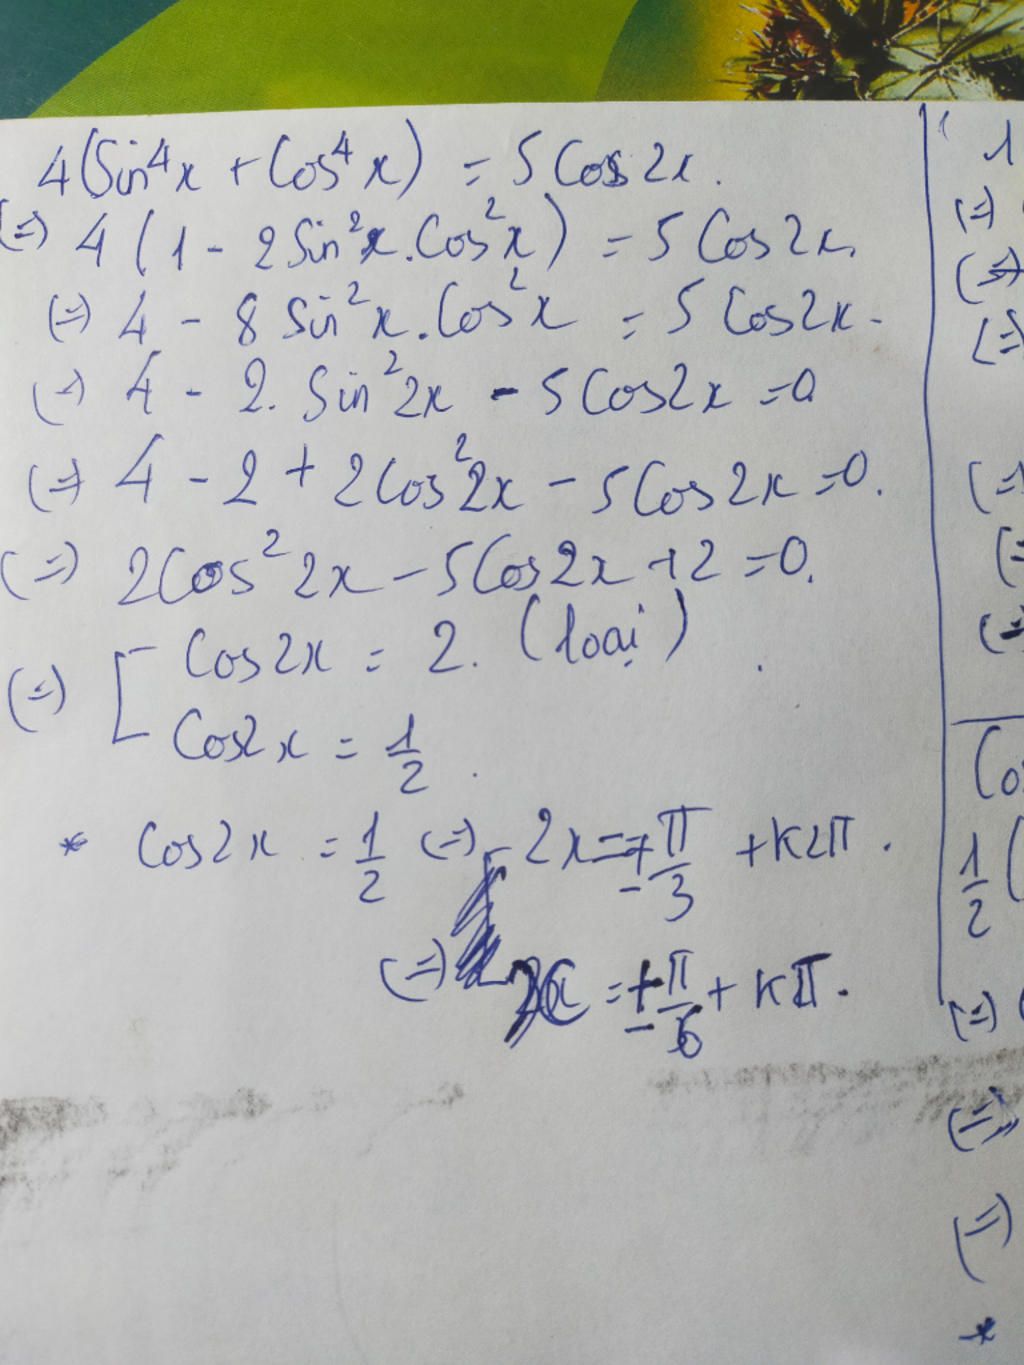 4(Sin⁴x + Cos⁴x) = 5Cos2x.
(=) 4(1 - 2Sin²x.Cos²x) = 5Cos2x.
(=) 4 - 8Sin²x.Cos²x = 5Cos2x-
(=) 4 - 2. Sin²2x - 5Cos2x =0
(=) 4 - 2 + 2Cos²2x - 5Cos2x =0.
(=) 2Cos²2x - 5Cos2x +2 =0.
(=) [ Cos2x = 2. (loại)
Cos2x = 1/2.
* Cos2x = 1/2 (=) 2x = ±π/3 + K2π.
(=) x = ±π/6 + Kπ.
1
(=)
(=)
(=)
(=)
(=)
(=)
Cos
1/2 (
(=)
(=)
(=)
*